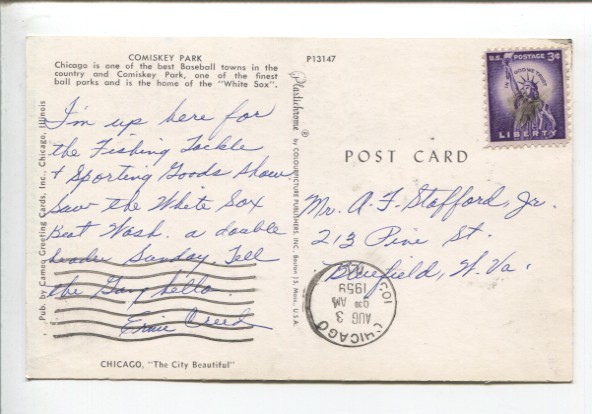 COMISKEY PARK
Chicago is one of the best Baseball towns in the
country and Comiskey Park, one of the finest
ball parks and is the home of the "White Sox".
I'm up here for
the Fishing Tackle
+ Sporting Goods Show.
Saw the White Sox
Beat Wash. a double
header Sunday. Tell
the Gang hello.
Ernie
CHICAGO, "The City Beautiful"
Pub. by Cameo Greeting Cards, Inc., Chicago, Illinois
P13147
Plastichrome ® by COLOURPICTURE PUBLISHERS, INC. Boston 15, Mass., U.S.A.
POST CARD
U.S. POSTAGE 3¢
IN GOD WE TRUST
LIBERTY
Mr. A. F. Stafford, Jr.
213 Pine St.
Bluefield, W. Va.
CHICAGO
AUG 3
AM
1959